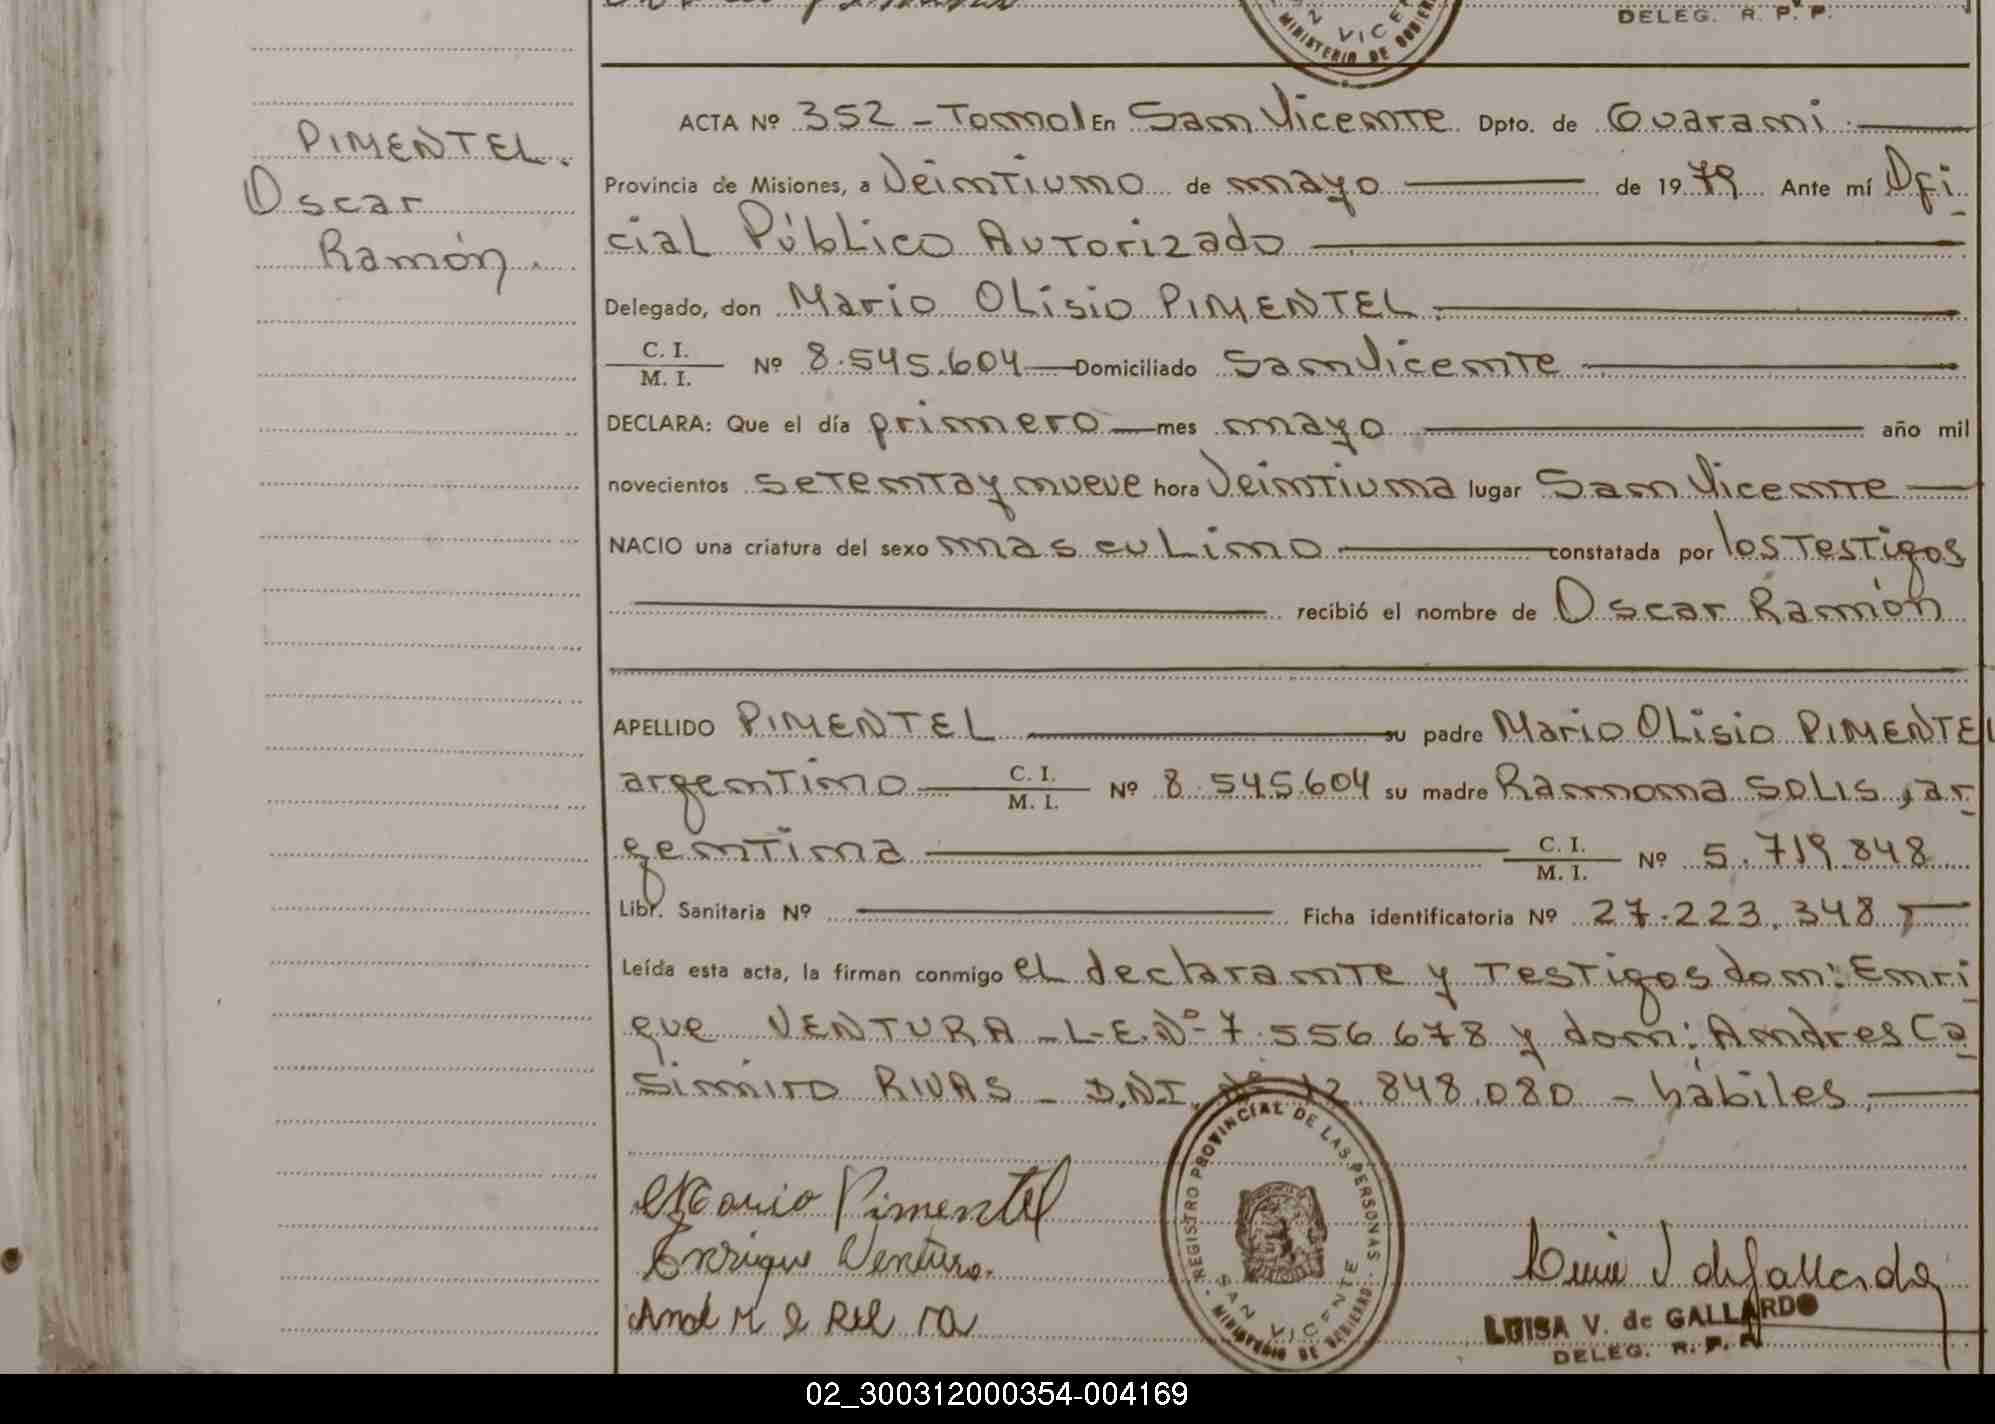 DELEG. R. P. P.
SAN VICENTE
MINISTERIO DE GOBIERNO
PIMENTEL.
Oscar
Ramón.
ACTA Nº 352 - Tomo I En San Vicente Dpto. de Guaraní
Provincia de Misiones, a Veintiuno de mayo de 1979 Ante mí Ofi-
cial Público Autorizado
Delegado, don Mario Olisio PIMENTEL.
C. I.
M. I. Nº 8.545.604 Domiciliado San Vicente
DECLARA: Que el día primero mes mayo año mil
novecientos setenta y nueve hora Veintiuna lugar San Vicente
NACIO una criatura del sexo masculino constatada por los Testigos
recibió el nombre de Oscar Ramón
APELLIDO PIMENTEL su padre Mario Olisio PIMENTEL
argentino C. I. M. I. Nº 8.545.604 su madre Ramona SOLIS, ar-
gentina C. I. M. I. Nº 5.719.848
Libr. Sanitaria Nº Ficha identificatoria Nº 27.223.348
Leída esta acta, la firman conmigo el declarante y Testigos don: Enri-
que VENTURA - L.E. Nº 7.556.678 y don: Andres Ca-
simiro RIVAS - D.N.I. Nº 12.848.080 - hábiles.
Mario Pimentel
Enrique Ventura.
REGISTRO PROVINCIAL DE LAS PERSONAS
SAN VICENTE
MINISTERIO DE GOBIERNO
LUISA V. de GALLARDO
DELEG. R. P. P.
02_300312000354-004169